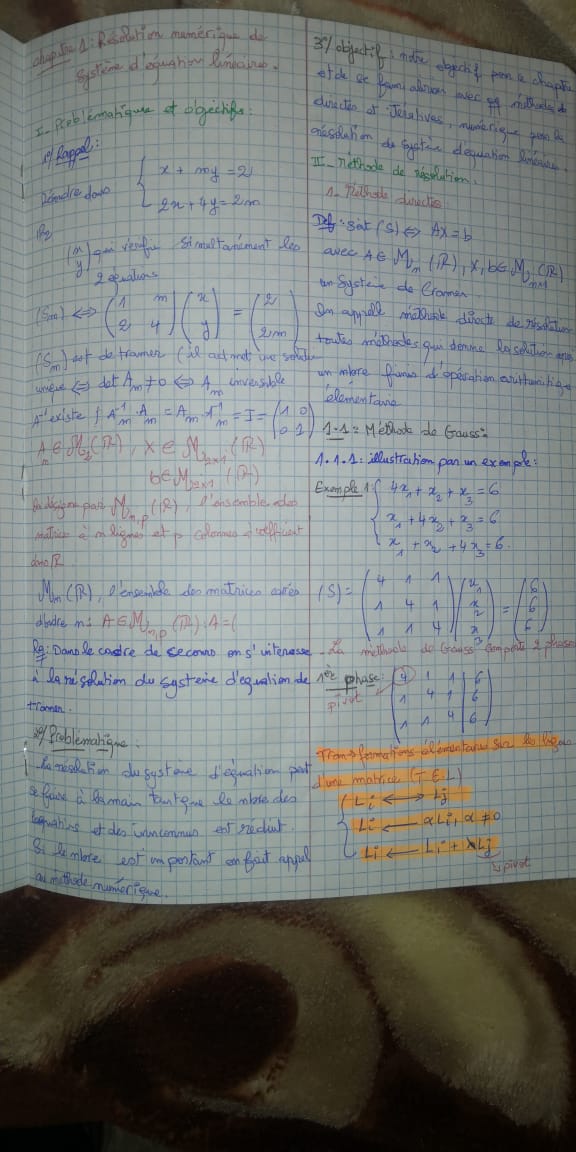 chapitre 1: Résolution numérique de
Système d'équation linéaires.
I- Problématique et objectifs:
1°/ Rappel:
Résoudre dans { x + my = 2
2x + 4y = 2m
IR2
(x y) qui vérifie simultanément les
2 équations
(Sm) ⟺ (1 m 2 4) (x y) = (2 2m)
(Sm) est de Cramer (il admet une solution
unique ⟺ det Am ≠ 0 ⟺ Am inversible
A⁻¹ existe / A⁻¹m . Am = Am A⁻¹m = I = (1 0 0 1)
Am ∈ M2(IR), X ∈ M2x1(IR)
b ∈ M2x1(IR)
On désigne par Mn,p(IR), l'ensemble des
matrices à n lignes et p colonnes à coefficient
dans IR
Mn(IR), l'ensemble des matrices carrés
d'ordre n: A ∈ Mn,p(IR): A = (
Rq: Dans le cadre de ce cours on s'interesse
à la résolution du système d'équation de
Cramer.
2°/ Problématique:
La résolution du système d'équation peut
se faire à la main tant que le nbre des
équations et des inconnues est réduit.
Si le nbre est important on fait appel
au méthode numérique.
3°/ objectif: notre objectif pour le chapitre
et de se familiariser avec qq méthodes
directes et Itératives, numérique pour la
résolution du système d'équation linéaire.
II- Méthode de résolution.
1- Méthode directes
Def: Soit (S) ⟺ AX = b
avec A ∈ Mn(IR), X, b ∈ Mnx1(IR)
un Système de Cramer
On appelle méthode directe de résolution
toutes méthodes qui donne la solution après
un nbre fini d'opération arithmétique
élémentaire
1.1: Méthode de Gauss:
1.1.1: illustration par un exemple:
Exemple 1 { 4x1 + x2 + x3 = 6
x1 + 4x2 + x3 = 6
x1 + x2 + 4x3 = 6.
(S) = (4 1 1 1 4 1 1 1 4) (x1 x2 x3) = (6 6 6)
- La méthode de Gauss comporte 2 phases
1ère phase: 4 1 1 | 6
pivot 1 4 1 | 6
1 1 4 | 6
Transformations élémentaires sur les lignes
d'une matrice (T E L)
{ Li ⟷ Lj
Li ⟵ αLi, α ≠ 0
Li ⟵ Li + λLj
pivot